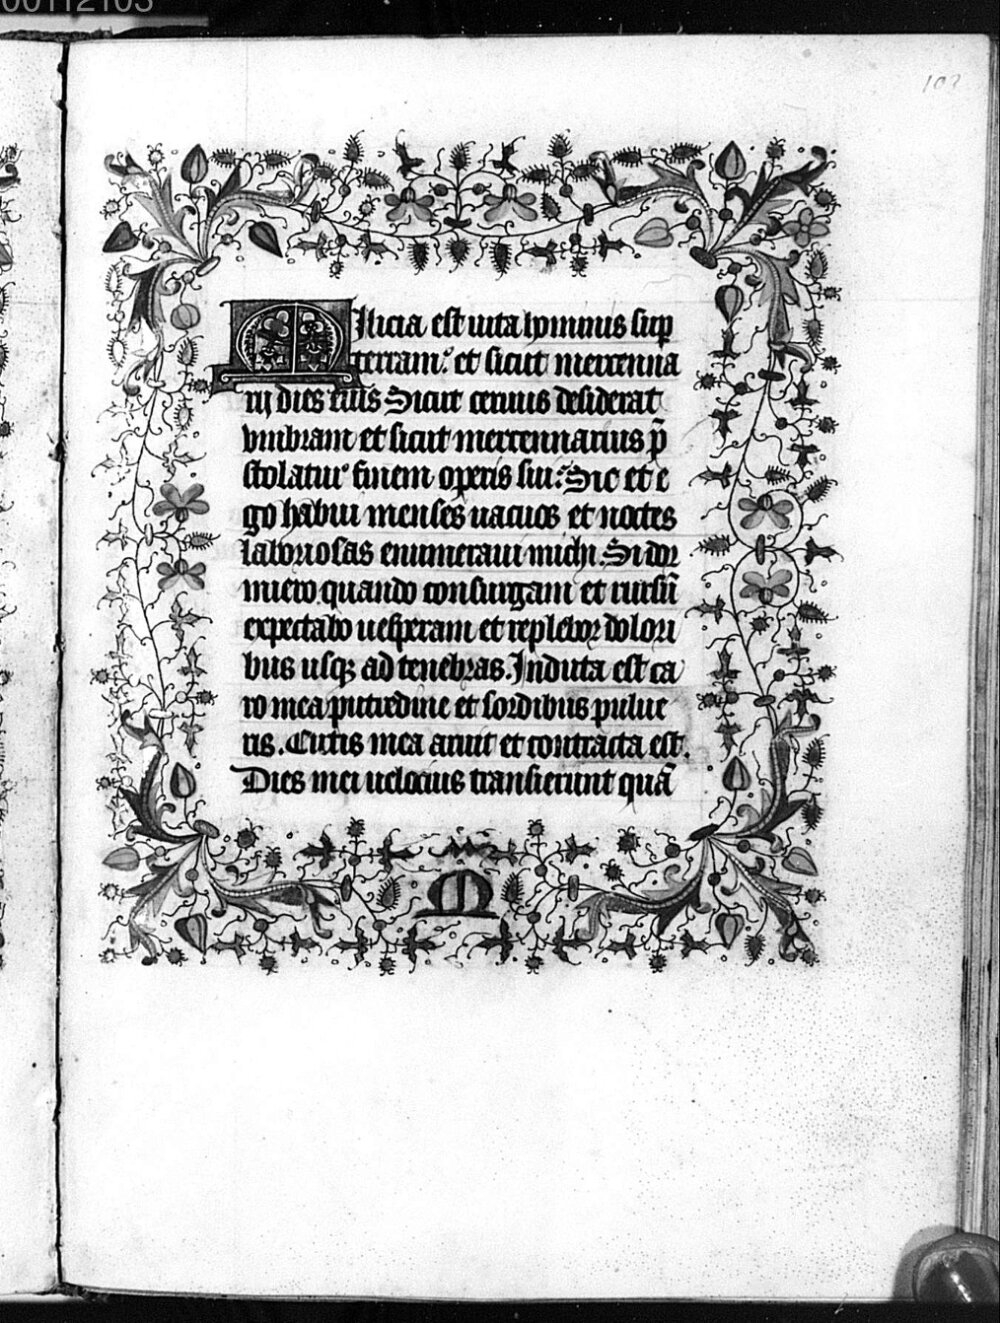 00112103
102
Milicia est uita hominis sup
terram: et sicut mercenna
rij dies eius Sicut ceruus desiderat
vmbram et sicut mercennarius p̄
stolatur finem operis sui: Sic et e
go habui menses uacuos et noctes
laboriosas enumeraui michi. Si dor
miero quando consurgam et rursū
expectabo uesperam et replebor dolori
bus usq3 ad tenebras. Induta est ca
ro mea putredine et sordibus pulue
ris. Cutis mea aruit et contracta est.
Dies mei uelocius transierunt quā
M